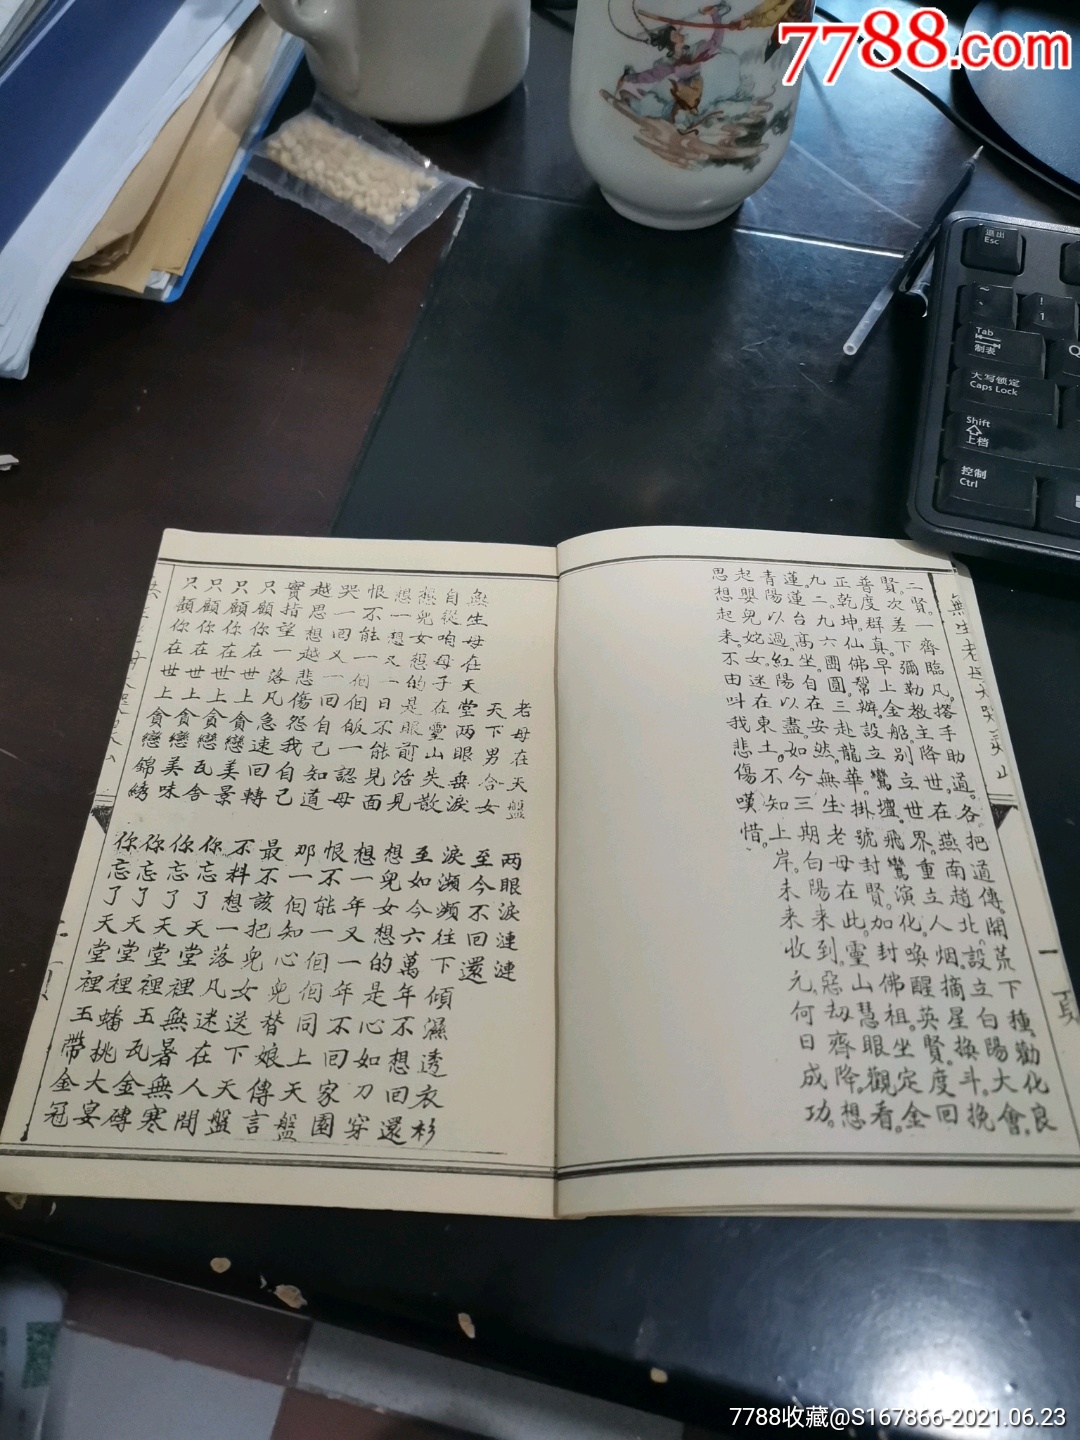 7788.com
退出
Esc
~
!
1
Tab
制表
Q
大写锁定
Caps Lock
Shift
上档
控制
Ctrl
無生老母大哭
一頁
二賢。一齊臨凡。撘手助道。各把道傳。開荒下種。勸化良
賢。次差下彌勒教主降世。在燕南趙北。設立白陽大會。挽
普度群真。早上金船。別立世界。重立人烟。摘星換斗。度回
正乾坤。仙佛幫辦。設立鸞壇。飛鸞演化。喚醒英賢。定金
九二。九六團圓。三赴龍華。掛號封賢。加封佛祖。坐觀看。
蓮蓮台高坐。自在安然。無生老母在此。靈山慧眼觀想。
青陽以過。紅陽以盡。如今三期白陽來到。惡劫齊降。
起嬰兒姹女。迷在東土。不知上岸。未來收元。何日成功。
思想起來。不由叫我悲傷嘆惜。
老母在天盤 两眼淚漣漣
天下男合女 至今不回還
無生母在天堂两眼垂淚 淚瀕瀕往下傾濕透衣衫
自從咱母子在靈山失散 至如今六萬年不想回還
想兒女想的是眼前活見 想兒女想的是心如刀穿
想一想又一日不能見面 想一年又一年不回家園
恨不能一個個皈一認母 恨不能一個個同上天盤
哭一回又一回自己知道 那一個知心兒替娘傳言
越思想越悲傷怨我自己 最不該把兒女送下天盤
實指望一落凡急速回轉 不料想一落凡迷在人間
只顧你在世上貪戀美景 你忘了天堂裡無暑無寒
只顧你在世上貪戀瓦舍 你忘了天堂裡玉瓦金磚
只顧你在世上貪戀美味 你忘了天堂裡蟠桃大宴
只顧你在世上貪戀錦綉 你忘了天堂裡玉帶金冠
7788收藏@S167866-2021.06.23